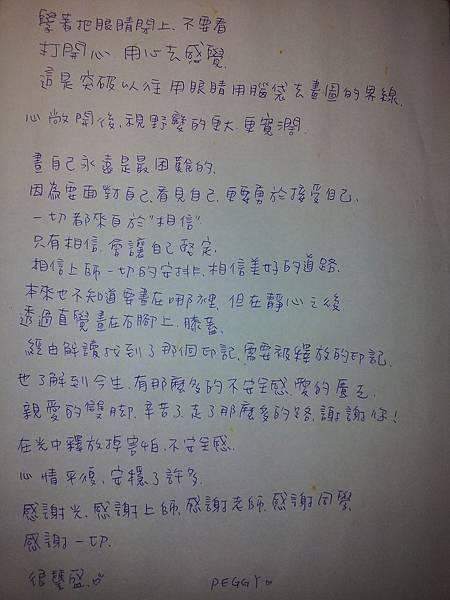 學著把眼睛閉上、不要看
打開心 用心去感覺.
這是突破以往用眼睛用腦袋去畫圖的界線.
心敞開後、視野變的更大更寬濶.
畫自己永遠是最困難的.
因為要面對自己.看見自己.更要勇於接受自己.
一切都來自於"相信".
只有相信.會讓自己堅定.
相信上師一切的安排.相信美好的道路.
本來也不知道要畫在哪裡.但在靜心之後
透過直覺畫在右腳上.膝蓋.
經由解讀找到了那個印記.需要被釋放的印記.
也了解到今生.有那麼多的不安全感.愛的匱乏.
親愛的雙腳.辛苦了.走了那麼多的路.謝謝你!
在光中釋放掉害怕.不安全感.
心情平復、安穩了許多.
感謝光.感謝上師.感謝老師.感謝同學
感謝一切.
很豐盛.
PEGGY